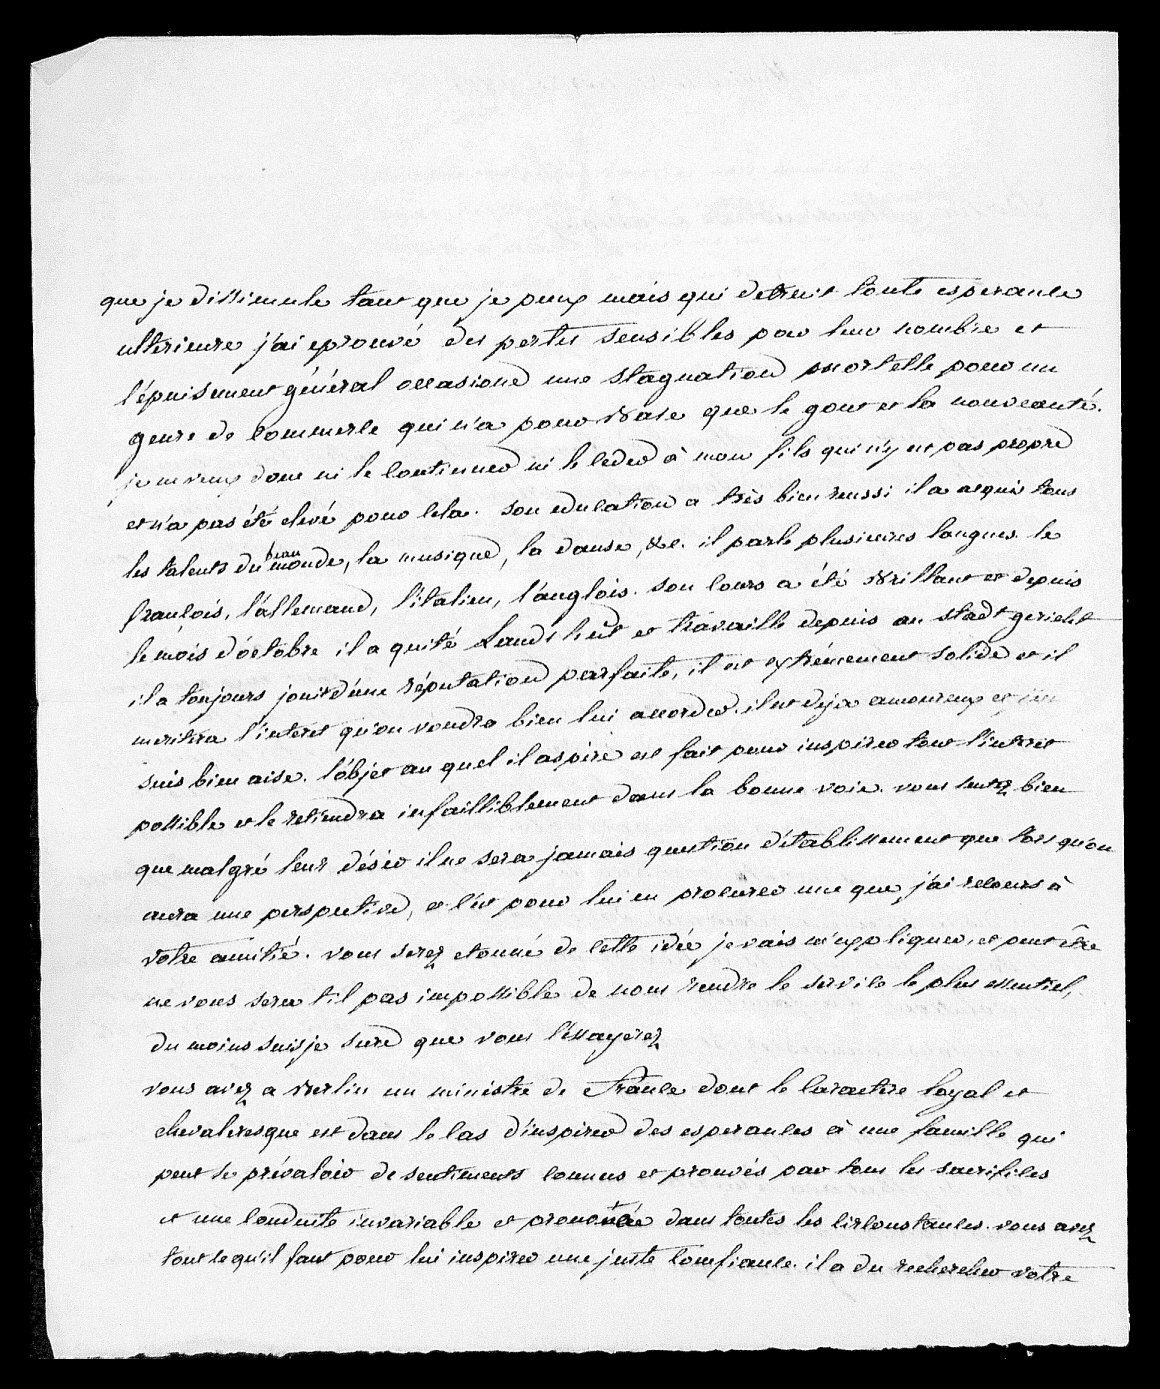 que je dissimule tant que je peux mais qui detruit toute esperance
ulterieure j'ai eprouvé des pertes sensibles par leur nombre et
l'épuisement général occasione une stagnation mortelle pour un
genre de commerce qui n'a pour base que le gout et la nouveauté.
je ne veux donc ni le continuer ni le ceder à mon fils qui n'y est pas propre
et n'a pas été elevé pour cela. son education a très bien reussi il a acquis tous
les talents du beau monde, la musique, la danse, &c. il parle plusieures langues. le
françois, l'allemand, l'italien, l'anglois. son cours a été brillant et depuis
le mois d'octobre il a quité Landshut et travaille depuis au stadtgericht
il a toujours jouit d'une réputation parfaite, il est extrémement solide et il
meritera l'interet qu'on voudra bien lui accorder. il est deja amoureux et j'en
suis bien aise. l'objet au quel il aspire est fait pour inspirer tout l'interet
possible et le retiendra infailliblement dans la bonne voie. vous sentez bien
que malgré leur désir il ne sera jamais question d'établissement que lors qu'on
aura une perspective, et c'est pour lui en procurer une que j'ai recours à
votre amitié. vous serez etonné de cette idée je vais m'expliquer, et peut être
ne vous sera t'il pas impossible de nous rendre le service le plus essentiel,
du moins suis je sure que vous l'essayerez
vous avez a Berlin un ministre de France dont le caractere loyal et
chevaleresque est dans le cas d'inspirer des esperances à une famille qui
peut se prévaloir de sentiments connus et prouvés par tous les sacrifices
et une conduite invariable et prononcée dans toutes les circonstances. vous avez
tout ce qu'il faut pour lui inspirer une juste confiance. il a du rechercher votre